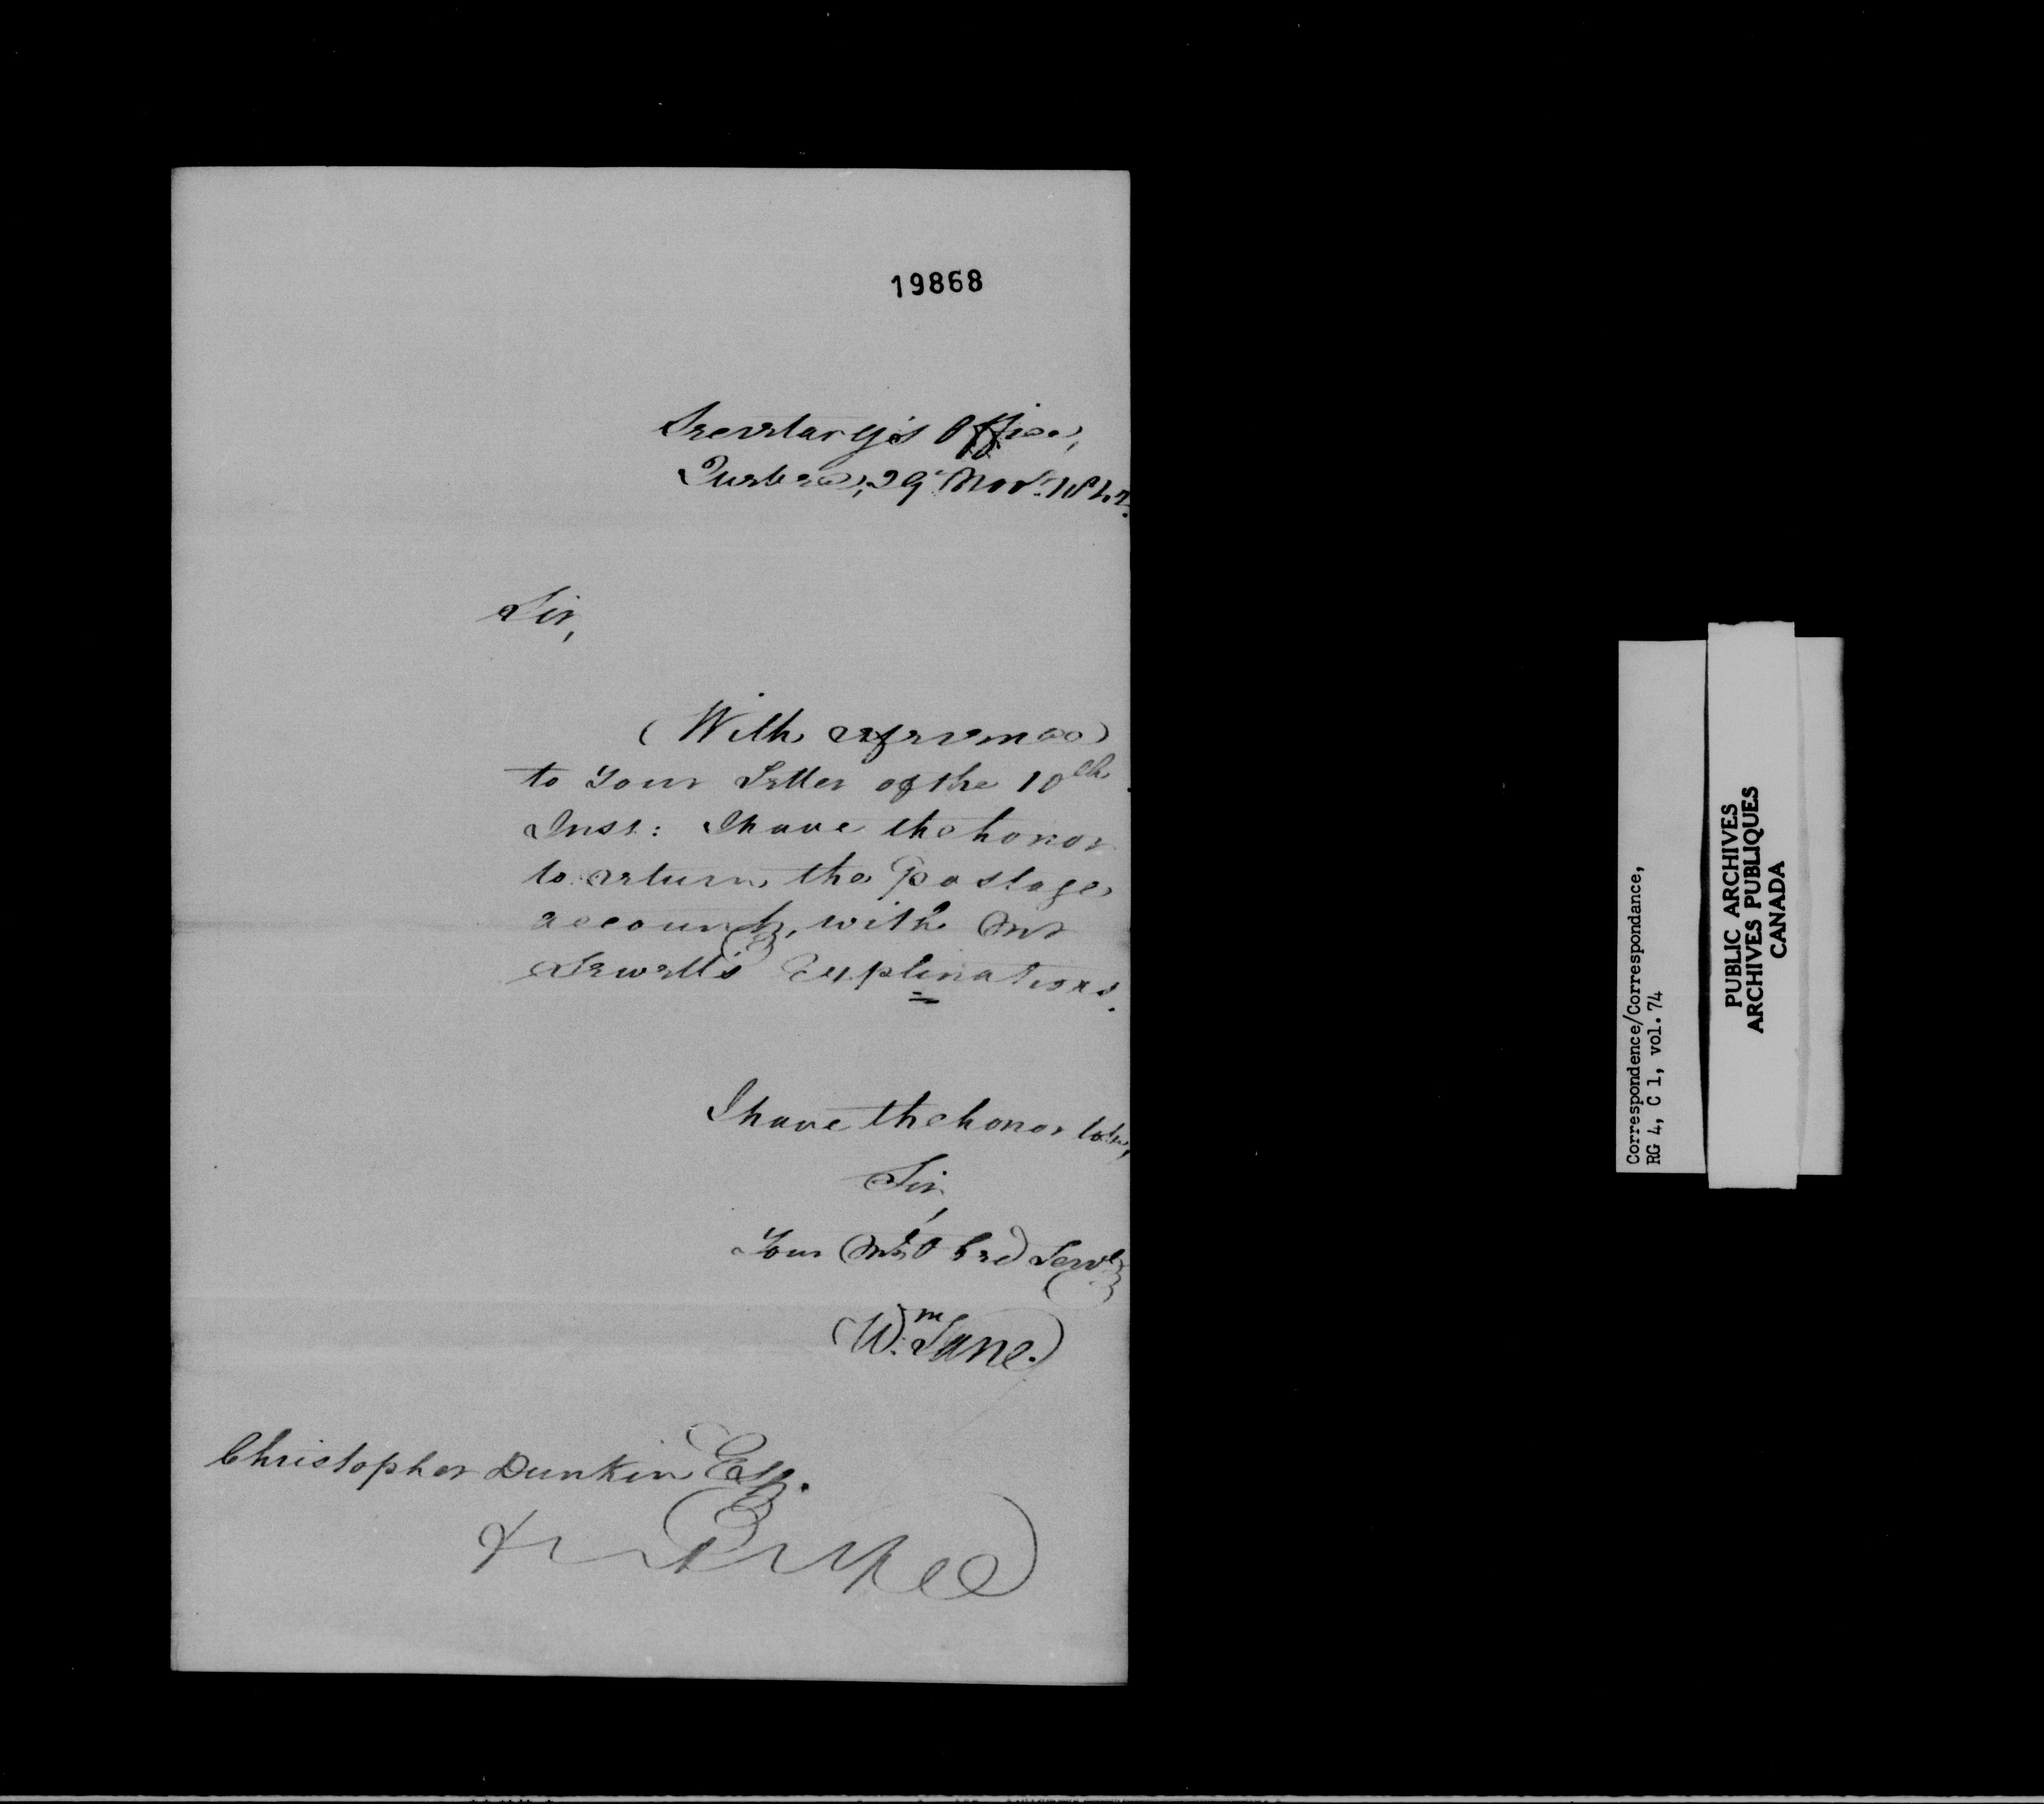 19868
Secretary's Office,
Quebec, 29 Nov.
Sir,
With reference
to Your Letter of the 10th
Inst: I have the honor
to return the Postage
account, with Mr
Sewell's Explinations.
I have the honor to be,
Sir,
Your Mo. Obed Servt
Wm Lane.
Christopher Dunkin Esq.
Correspondence/Correspondance,
RG 4, C 1, vol. 74
PUBLIC ARCHIVES
ARCHIVES PUBLIQUES
CANADA